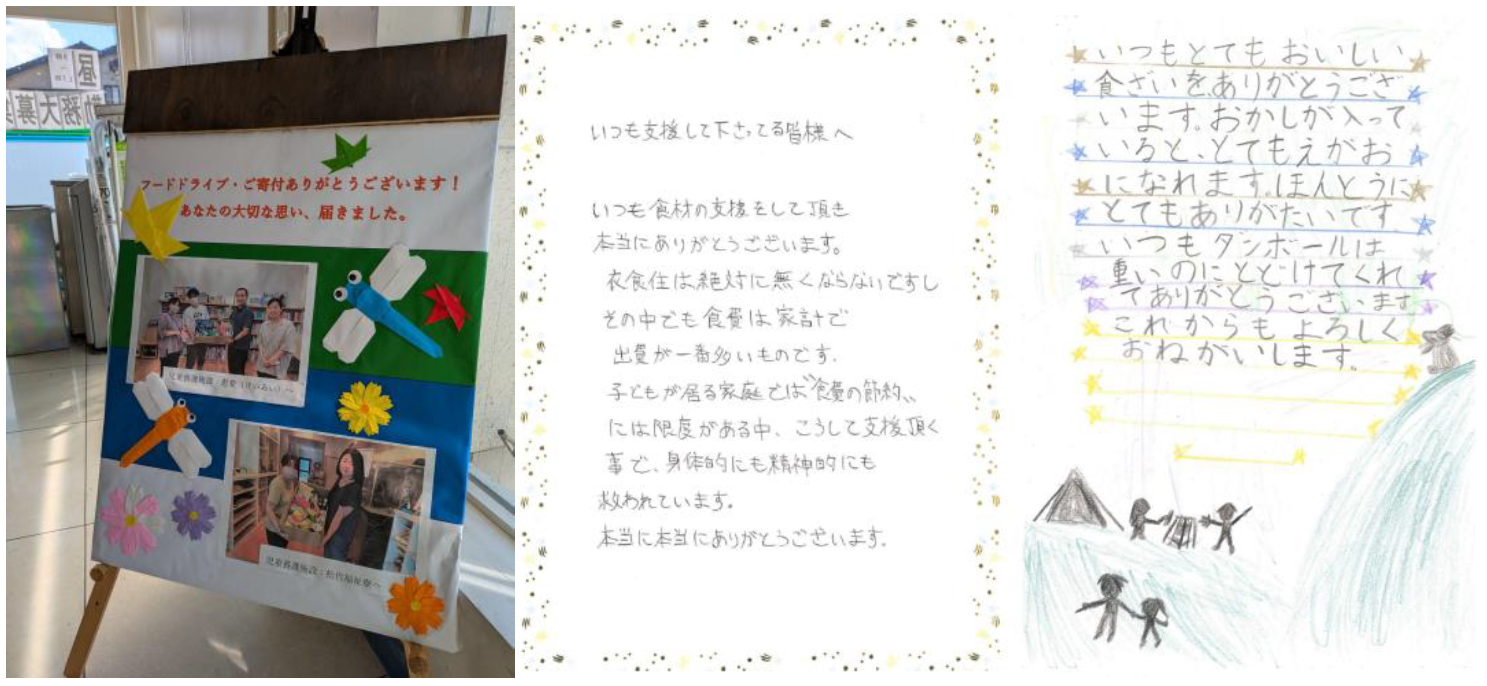 昼
勤務大募集
フードドライブ・ご寄付ありがとうございます！
あなたの大切な思い、届きました。
児童養護施設：慈愛（けいあい）へ
児童養護施設：松竹福祉寮へ
いつも支援して下さってる皆様へ
いつも食材の支援をして頂き
本当にありがとうございます。
衣食住は絶対に無くならないですし
その中でも食費は家計で
出費が一番多いものです.
子どもが居る家庭では“食費の節約„
には限度がある中、こうして支援頂く
事で、身体的にも精神的にも
救われています。
本当に本当にありがとうございます.
いつもとてもおいしい
食ざいをありがとうござ
います。おかしが入って
いると、とてもえがお
になれます。ほんとうに
とてもありがたいです.
いつもダンボールは
重いのにとどけてくれ
てありがとうございます
これからもよろしく
おねがいします。